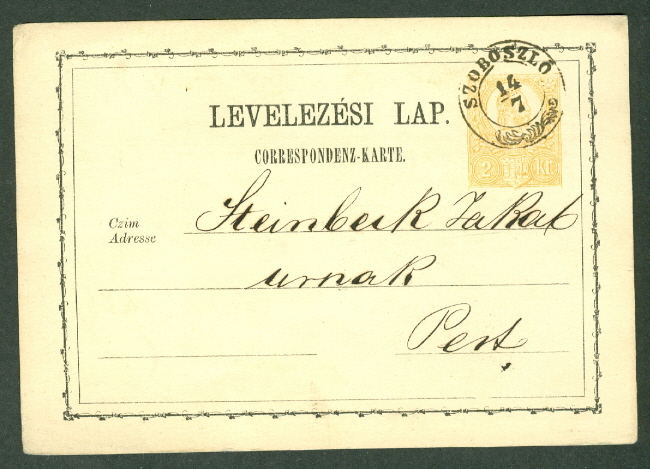 SZOBOSZLÓ
14
7
LEVELEZÉSI LAP.
CORRESPONDENZ-KARTE.
2 Kr
Czim
Adresse
Steinbeck Jakab
urnak
Pest